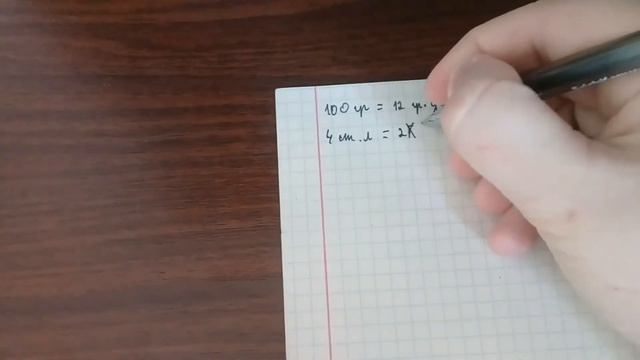 100 гр = 12 гр. у
4 ст. л = 2X